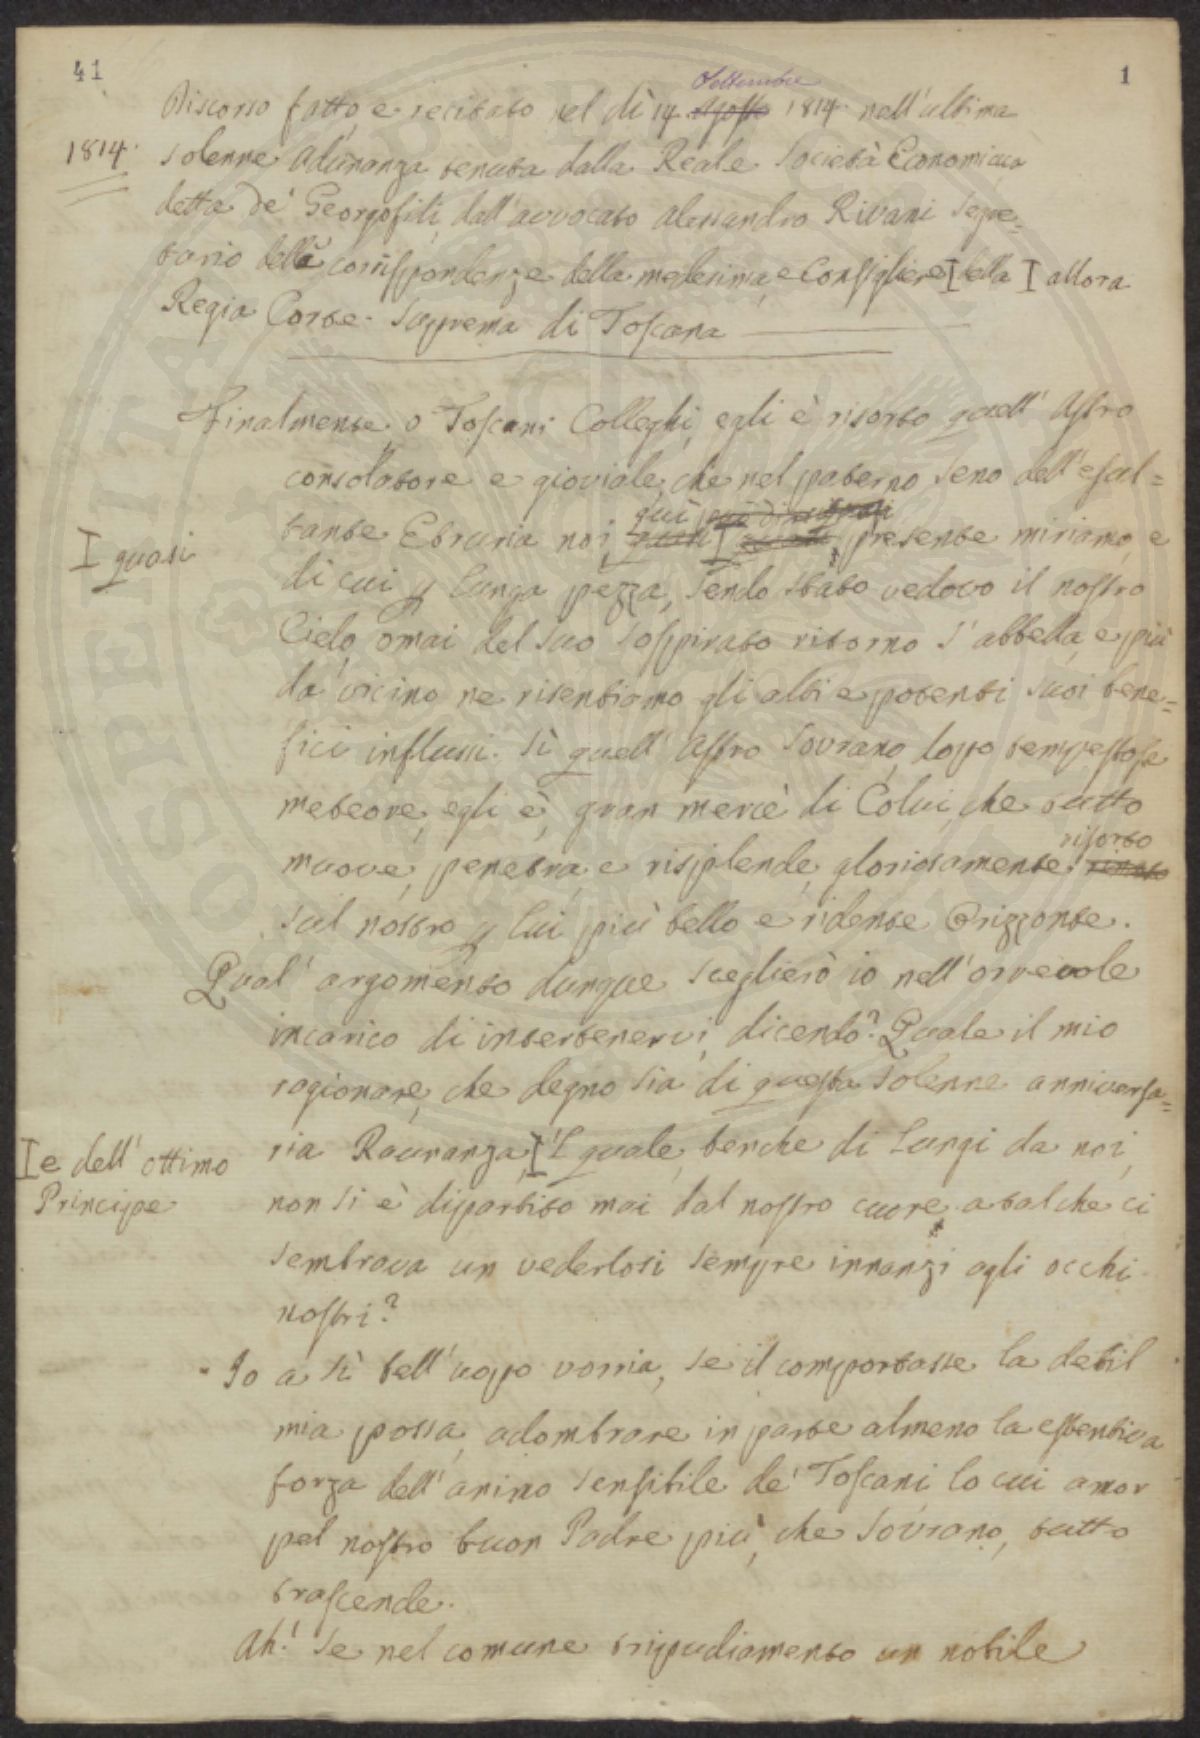 41
1
Settembre
Discorso fatto e recitato nel dì 14 Agosto 1814. nell'ultima
1814.
solenne Adunanza tenuta dalla Reale Società Economica
detta de' Georgofili, dall'avvocato Alessandro Rivani Segre-
tario delle corrispondenze della medesima, e Consigliere I della I allora
Regia Corte Suprema di Toscana
Finalmente, o Toscani Colleghi, egli è risorto quell'Astro
consolatore e gioviale, che nel paterno seno dell'esul=
qui
I quasi
tante Etruria noi, quasi I presente miriamo, e
di cui p lunga pezza, sendo stato vedovo il nostro
Cielo, omai del suo sospirato ritorno s'abbella, e più
da vicino ne risentiamo gli alti e potenti suoi bene=
fici influssi. Sì quell'Astro Sovrano, dopo tempestose
meteore, egli è, gran mercè di Colui, che tutto
risorto
muove, penetra, e risplende, gloriosamente
sul nostro p lui più bello e ridente Orizzonte.
Qual'argomento dunque sceglierò io nell'orrevole
incarico di intertenervi, dicendo? Quale il mio
ragionare, che degno sia di questa solenne anniversa=
I e dell'ottimo
Principe
ria Raunanza, I 'l quale, benche di lungi da noi,
non si è dipartito mai dal nostro cuore, a talche ci
sembrava un vederlosi sempre innanzi agli occhi
nostri?
Io a sì bell'uopo vorria, se il comportasse la debil
mia possa, adombrare in parte almeno la estentiva
forza dell'animo sensibile de' Toscani, lo cui amor
pel nostro buon Padre più, che Sovrano, tutto
trascende.
Ah! se nel comune tripudiamento un nobile